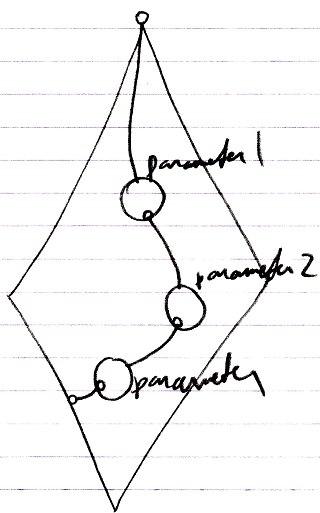 parameter 1
parameter 2
parameter